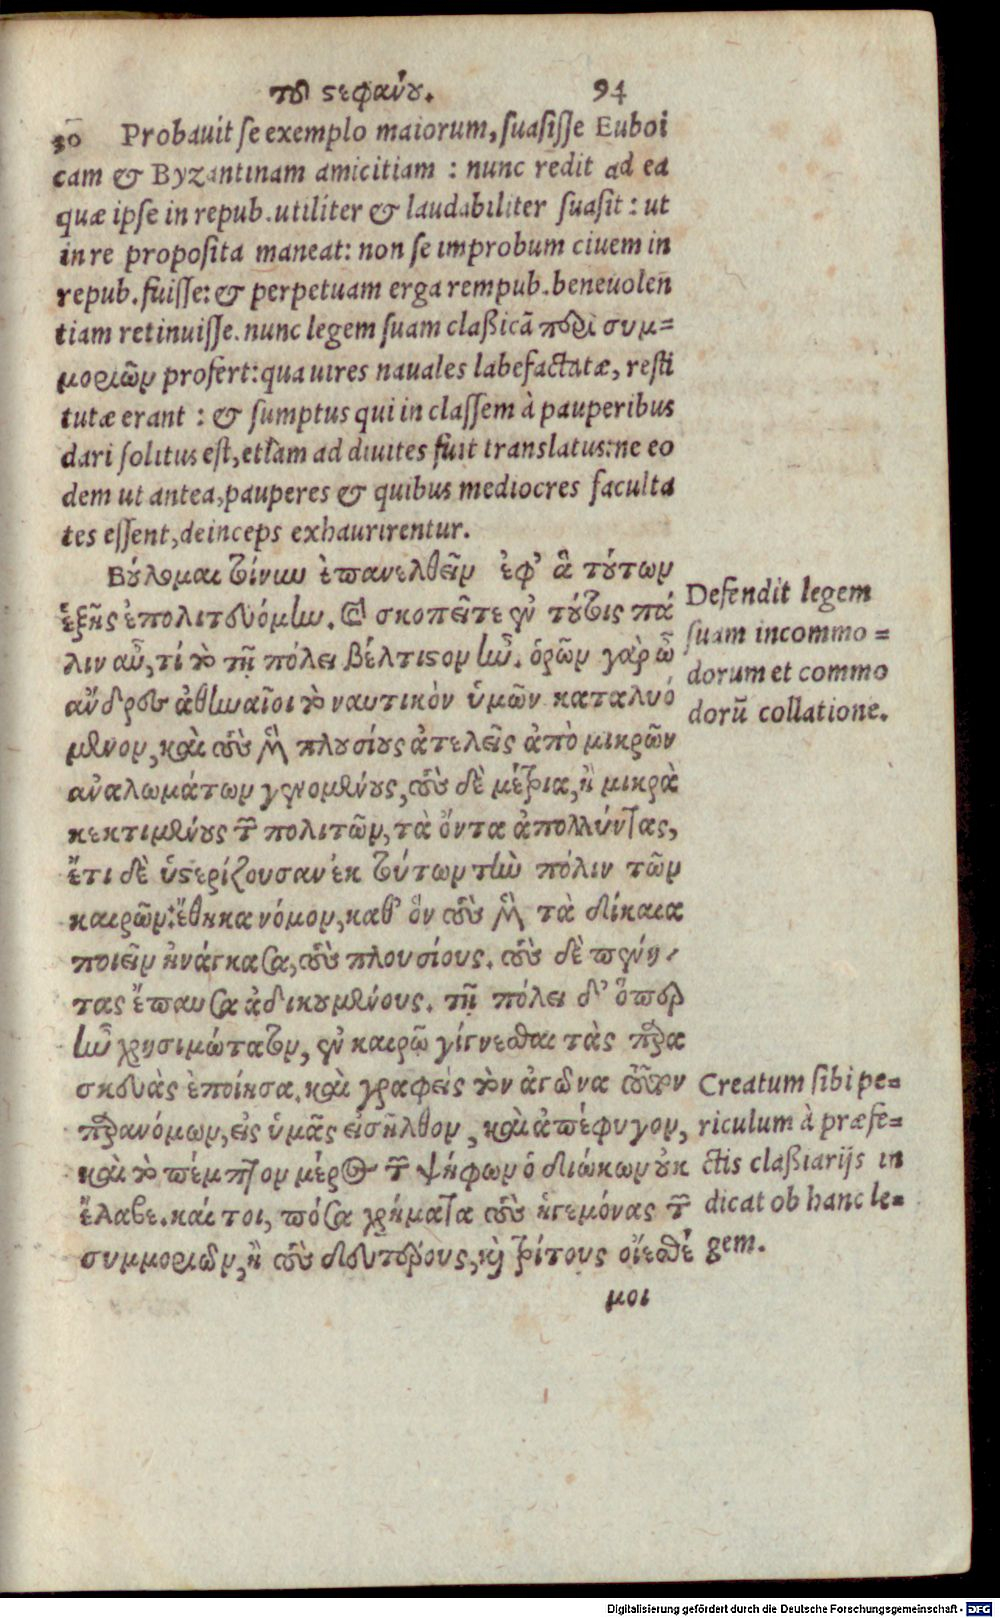 τοῦ στεφάνου. 94
30 Probauit se exemplo maiorum, suasisse Euboi
cam & Byzantinam amicitiam : nunc redit ad ea
quæ ipse in repub. utiliter & laudabiliter suasit : ut
in re proposita maneat: non se improbum ciuem in
repub. fuisse: & perpetuam erga rempub. beneuolen
tiam retinuisse. nunc legem suam claßicā περὶ συμ=
μοριῶν profert: qua uires nauales labefactatæ, resti
tutæ erant : & sumptus qui in classem à pauperibus
dari solitus est, etiam ad diuites fuit translatus: ne eo
dem ut antea, pauperes & quibus mediocres faculta
tes essent, deinceps exhaurirentur.
Βούλομαι τοίνυν ἐπανελθεῖν ἐφ' ἃ τούτων
ἑξῆς ἐπολιτευόμην. καὶ σκοπεῖτε ἐν τούτοις πά
λιν αὖ, τί τὸ τῇ πόλει βέλτιστον ἦν. ὁρῶν γὰρ ὦ
ἄνδρες ἀθηναῖοι τὸ ναυτικὸν ὑμῶν καταλυό
μενον, καὶ τοὺς μὲν πλουσίους ἀτελεῖς ἀπὸ μικρῶν
ἀναλωμάτων γινομένους, τοὺς δὲ μέτρια, ἢ μικρὰ
κεκτιμένους τῶν πολιτῶν, τὰ ὄντα ἀπολλύντας,
ἔτι δὲ ὑστερίζουσαν ἐκ τούτων τὴν πόλιν τῶν
καιρῶν: ἔθηκα νόμον, καθ' ὃν τοὺς μὲν τὰ δίκαια
ποιεῖν ἠνάγκασα, τοὺς πλουσίους. τοὺς δὲ πένη-
τας ἔπαυσα ἀδικουμένους. τῇ πόλει δ' ὅπερ
ἦν χρησιμώτατον, ἐν καιρῷ γίγνεσθαι τὰς παρα
σκευὰς ἐποίησα. καὶ γραφεὶς τὸν ἀγῶνα τοῦτον
παρανόμων, εἰς ὑμᾶς εἰσῆλθον, καὶ ἀπέφυγον,
καὶ τὸ πέμπτον μέρος τῶν ψήφων ὁ διώκων οὐκ
ἔλαβε. καί τοι, πόσα χρήματα τοὺς ἡγεμόνας τῶν
συμμοριῶν, ἢ τοὺς δευτέρους, καὶ τρίτους οἴεσθέ
μοι
Defendit legem
suam incommo =
dorum et commo
dorū collatione.
Creatum sibi pe=
riculum à præfe=
ctis claßiarijs in
dicat ob hanc le=
gem.
Digitalisierung gefördert durch die Deutsche Forschungsgemeinschaft - DFG